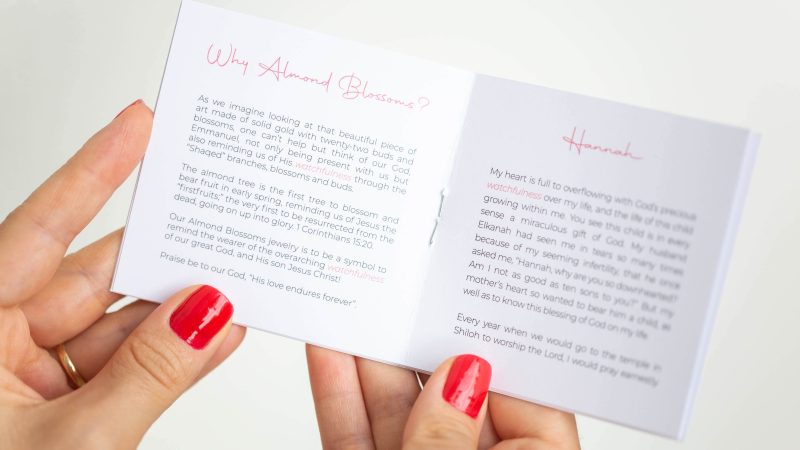 Why Almond Blossoms?
As we imagine looking at that beautiful piece of
art made of solid gold with twenty-two buds and
blossoms, one can't help but think of our God,
Emmanuel, not only being present with us but
also reminding us of His watchfulness through the
"Shaqed" branches, blossoms and buds.
The almond tree is the first tree to blossom and
bear fruit in early spring, reminding us of Jesus the
"firstfruits;" the very first to be resurrected from the
dead, going on up into glory. 1 Corinthians 15:20.
Our Almond Blossoms jewelry is to be a symbol to
remind the wearer of the overarching watchfulness
of our great God, and His son Jesus Christ!
Praise be to our God, "His love endures forever".
Hannah
My heart is full to overflowing with God's precious
watchfulness over my life, and the life of this child
growing within me. You see this child is in every
sense a miraculous gift of God. My husband
Elkanah had seen me in tears so many times
because of my seeming infertility, that he once
asked me, "Hannah, why are you so downhearted?
Am I not as good as ten sons to you?" But my
mother's heart so wanted to bear him a child, as
well as to know this blessing of God on my life.
Every year when we would go to the temple in
Shiloh to worship the Lord, I would pray earnestly